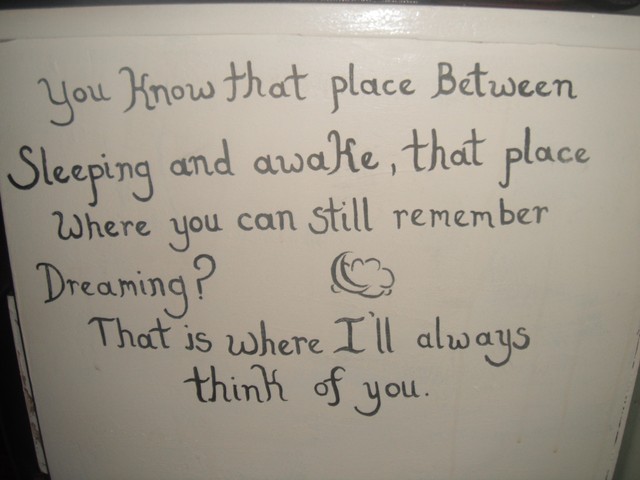 You Know that place Between
Sleeping and awake, that place
Where you can still remember
Dreaming?
That is where I'll always
think of you.